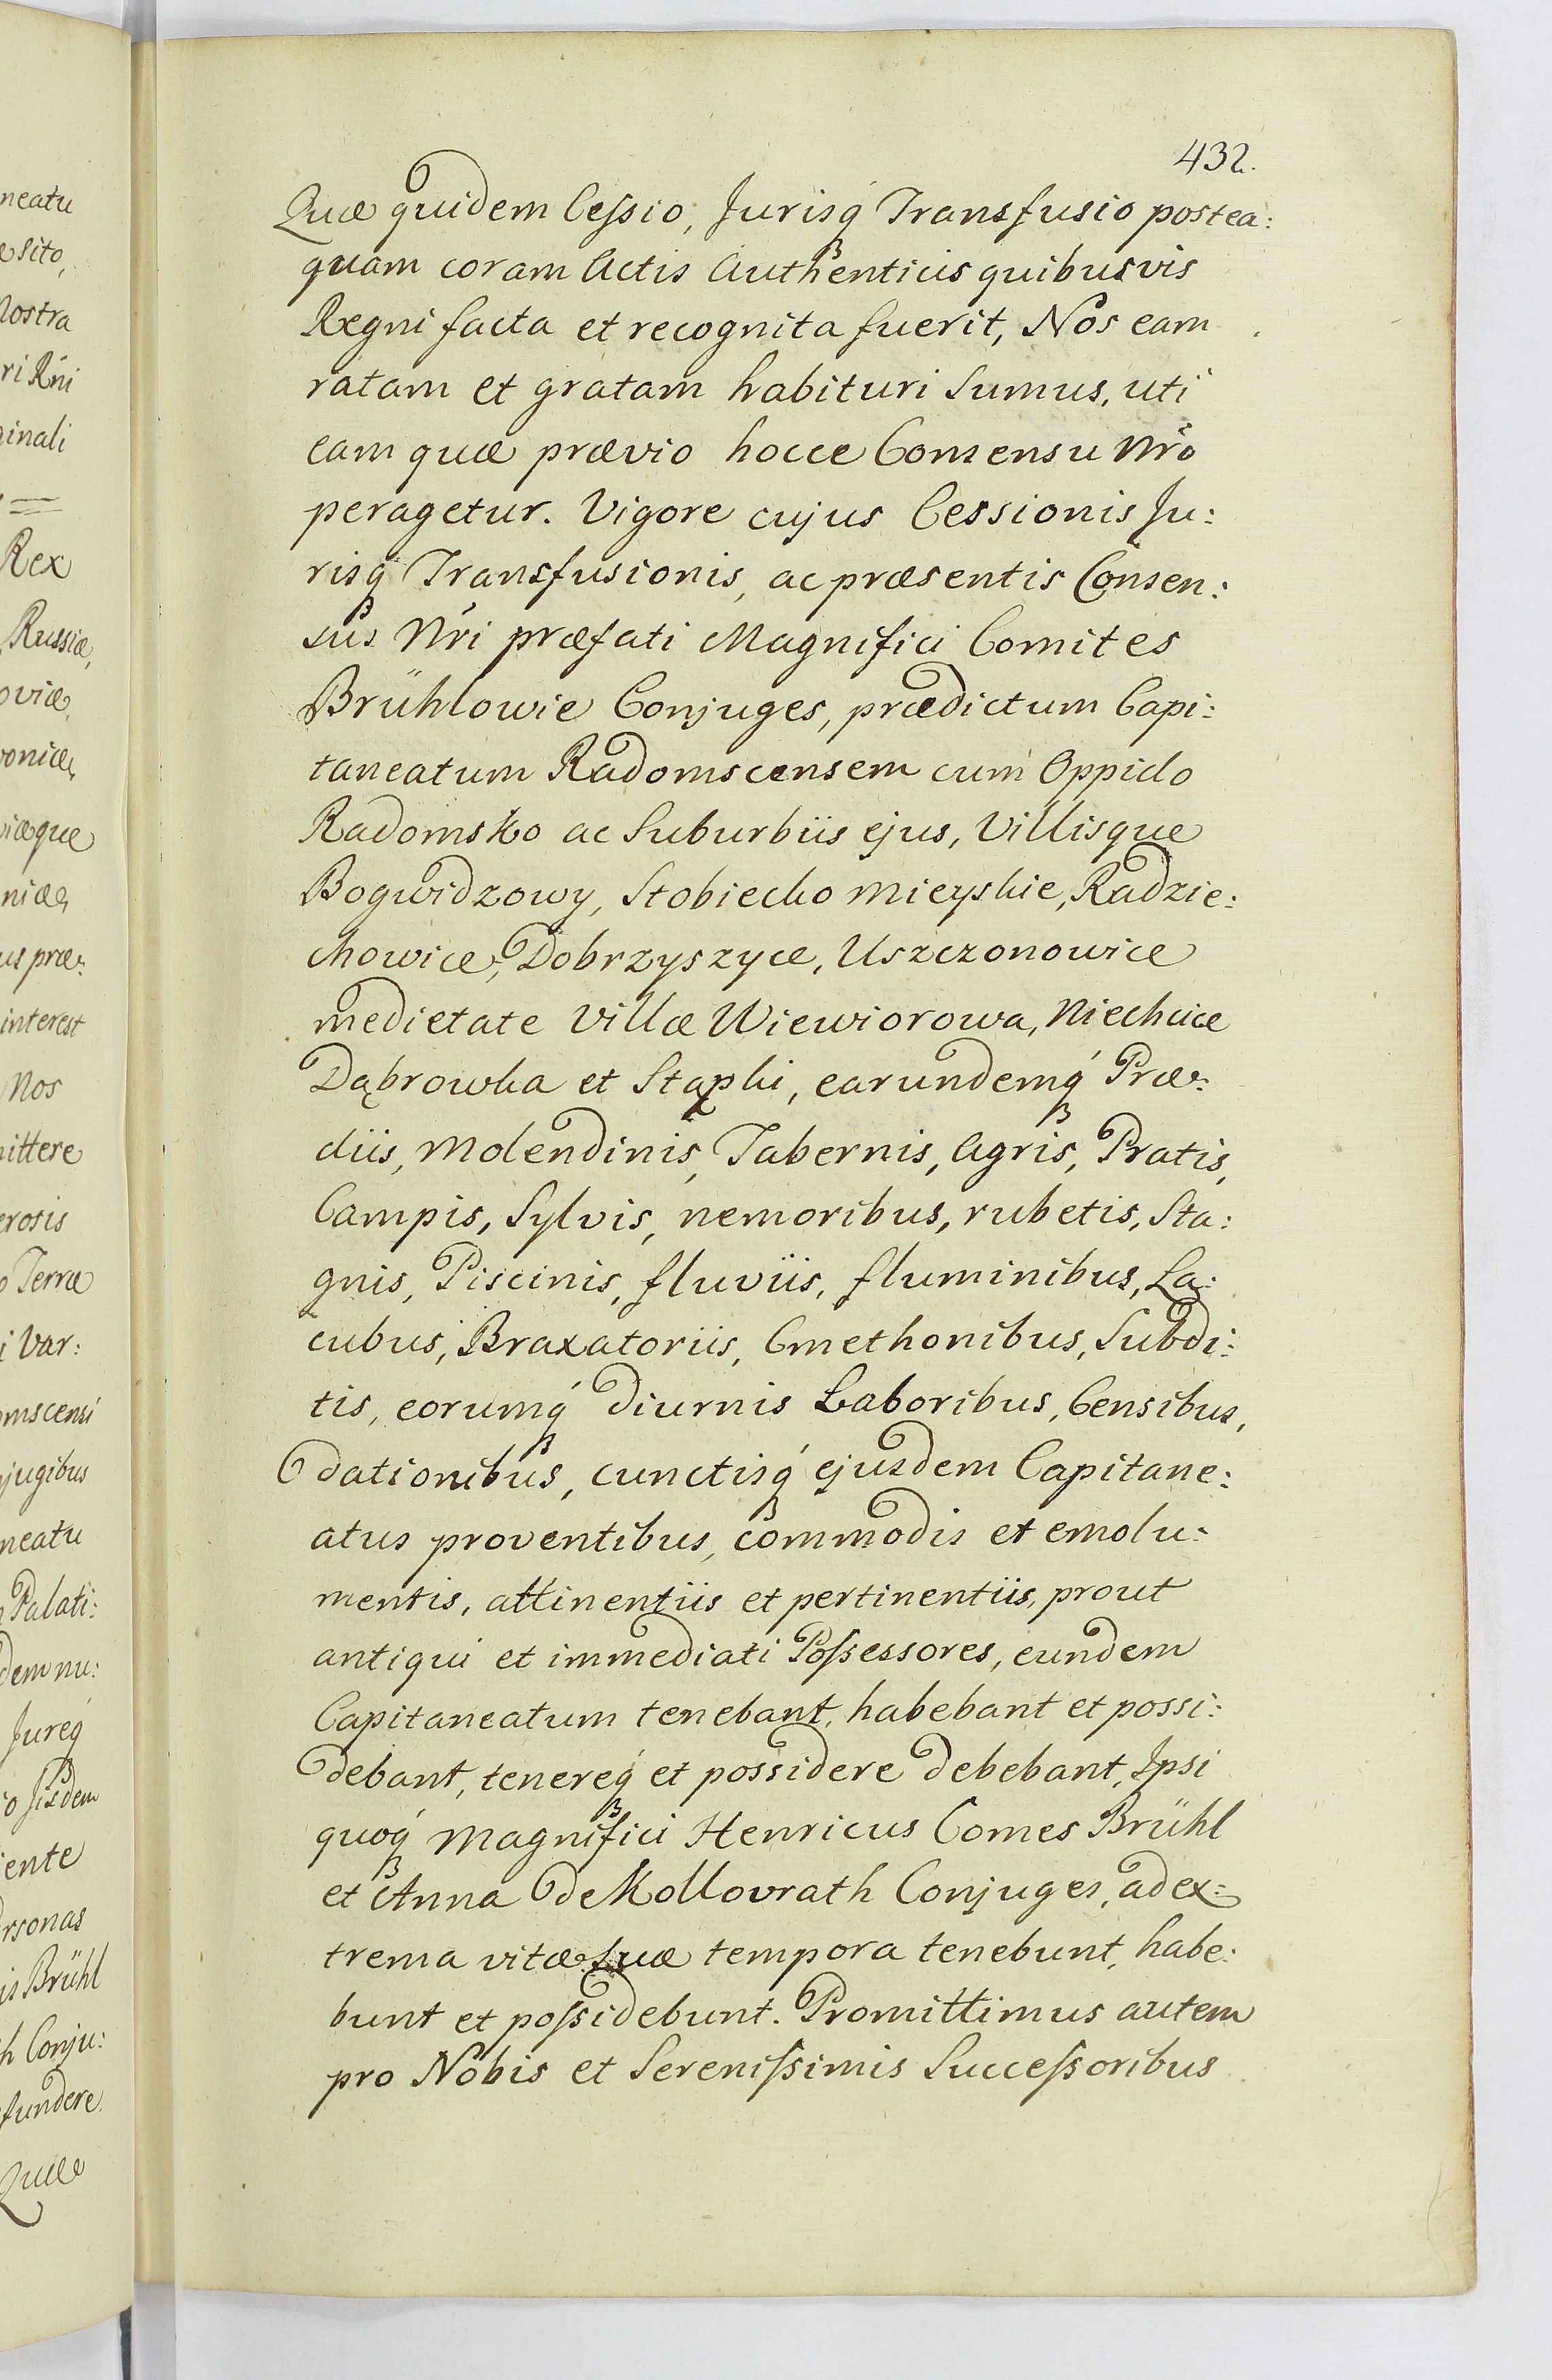 432.
Quæ quidem Cessio, Jurisq́ Transfusio postea:
quam coram Actis Authenticis quibusvis
Regni facta et recognita fuerit, Nos eam
ratam et gratam habituri sumus, uti
eam quæ prævio hocce Consensu Nr̃o
peragetur. Vigore cujus Cessionis Ju:
risq́ Transfusionis, ac præsentis Consen:
sus Nr̃i præfati Magnifici Comites
Brühlowie Conjuges, prædictum Capi:
taneatum Radomscensem cum Oppido
Radomsko ac Suburbiis ejus, Villisque
Bogwidzowy, Stobiecko Mieyskie, Radzie:
chowice, Dobrzyszyce, Uszczonowice
medietate Villæ Wiewiorowa, Niechcice
Dąbrowka et Stąpki, earundemq́ Præ:
diis, Molendinis, Tabernis, Agris, Pratis,
Campis, Sylvis, nemoribus, rubetis, Sta:
gnis, Piscinis, fluviis, fluminibus, La:
cubus, Braxatoriis, Cmethonibus, Subdi:
tis, eorumq́ diurnis Laboribus, Censibus,
dationibus, cunctisq́ ejusdem Capitane:
atus proventibus, commodis et emolu:
mentis, attinentiis et pertinentiis, prout
antiqui et immediati Possessores, eundem
Capitaneatum tenebant, habebant et possi:
debant, tenereq́ et possidere debebant, Ipsi
quoq́ Magnifici Henricus Comes Brühl
et Anna de Kollovrath Conjuges, ad ex:
trema vitæ suæ tempora tenebunt, habe:
bunt et possidebunt. Promittimus autem
pro Nobis et Serenissimis Successoribus